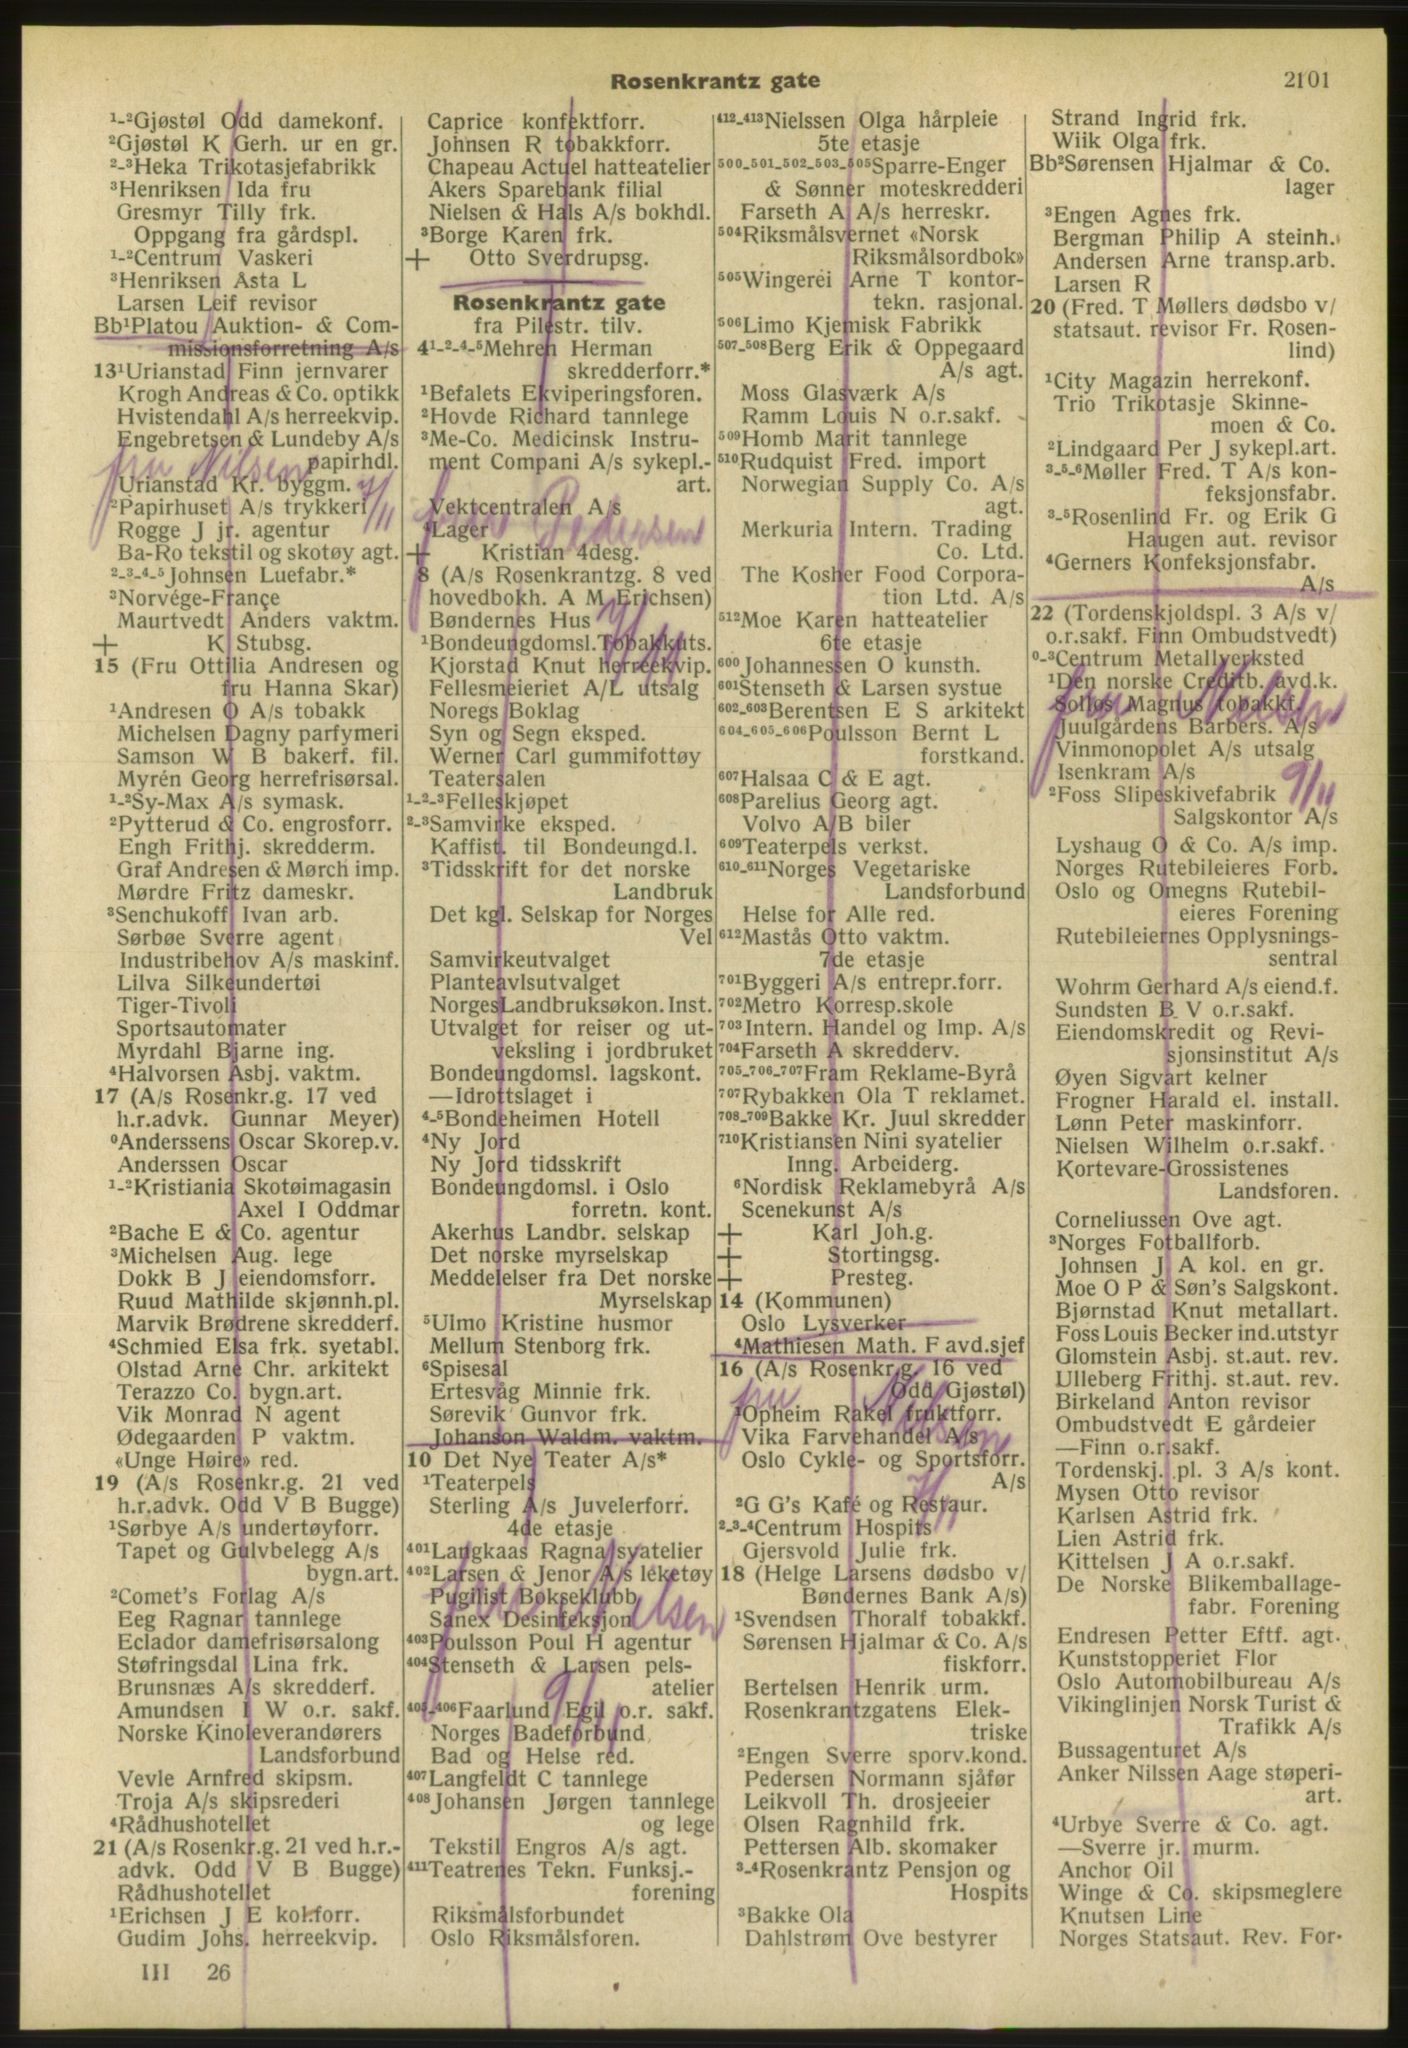 Rosenkrantz gate
2101
¹-²Gjøstøl Odd damekonf.
²Gjøstøl K Gerh. ur en gr.
²-³Heka Trikotasjefabrikk
³Henriksen Ida fru
Gresmyr Tilly frk.
Oppgang fra gårdspl.
¹-²Centrum Vaskeri
³Henriksen Asta L
Larsen Leif revisor
Bb¹Platou Auktion- & Com-
missionsforretning A/s
13¹Urianstad Finn jernvarer
Krogh Andreas & Co. optikk
Hvistendahl A/s herreekvip.
Engebretsen & Lundeby A/s
papirhdl.
fru Nilsen
Urianstad Kr. byggm.
7/11
²Papirhuset A/s trykkeri
Rogge J jr. agentur
Ba-Ro tekstil og skotøy agt.
²-³-⁴-⁵Johnsen Luefabr.*
³Norvége-Françe
Maurtvedt Anders vaktm.
+ K Stubsg.
15 (Fru Ottilia Andresen og
fru Hanna Skar)
¹Andresen O A/s tobakk
Michelsen Dagny parfymeri
Samson W B bakerf. fil.
Myrén Georg herrefrisørsal.
¹-²Sy-Max A/s symask.
²Pytterud & Co. engrosforr.
Engh Frithj. skredderm.
Graf Andresen & Mørch imp.
Mørdre Fritz dameskr.
³Senchukoff Ivan arb.
Sørbøe Sverre agent
Industribehov A/s maskinf.
Lilva Silkeundertøi
Tiger-Tivoli
Sportsautomater
Myrdahl Bjarne ing.
⁴Halvorsen Asbj. vaktm.
17 (A/s Rosenkr.g. 17 ved
h.r.advk. Gunnar Meyer)
⁰Anderssens Oscar Skorep.v.
Anderssen Oscar
¹-²Kristiania Skotøimagasin
Axel I Oddmar
²Bache E & Co. agentur
³Michelsen Aug. lege
Dokk B J eiendomsforr.
Ruud Mathilde skjønnh.pl.
Marvik Brødrene skredderf.
⁴Schmied Elsa frk. syetabl.
Olstad Arne Chr. arkitekt
Terazzo Co. bygn.art.
Vik Monrad N agent
Ødegaarden P vaktm.
«Unge Høire» red.
19 (A/s Rosenkr.g. 21 ved
h.r.advk. Odd V B Bugge)
¹Sørbye A/s undertøyforr.
Tapet og Gulvbelegg A/s
bygn.art.
²Comet's Forlag A/s
Eeg Ragnar tannlege
Eclador damefrisørsalong
Støfringsdal Lina frk.
Brunsnæs A/s skredderf.
Amundsen I W o.r. sakf.
Norske Kinoleverandørers
Landsforbund
Vevle Arnfred skipsm.
Troja A/s skipsrederi
⁴Rådhushotellet
21 (A/s Rosenkr.g. 21 ved h.r.-
advk. Odd V B Bugge)
Rådhushotellet
¹Erichsen J E kolforr.
Gudim Johs. herreekvip.
III 26
Caprice konfektforr.
Johnsen R tobakkforr.
Chapeau Actuel hatteatelier
Akers Sparebank filial
Nielsen & Hals A/s bokhdl.
³Borge Karen frk.
+ Otto Sverdrupsg.
Rosenkrantz gate
fra Pilestr. tilv.
4¹-²-⁴-⁵Mehren Herman
skredderforr.*
¹Befalets Ekviperingsforen.
²Hovde Richard tannlege
³Me-Co. Medicinsk Instru-
ment Compani A/s sykepl.-
art.
Vektcentralen A/s
fru Pedersen
⁴Lager
+ Kristian 4desg.
8 (A/s Rosenkrantzg. 8 ved
hovedbokh. A M Erichsen)
Bøndernes Hus
7/11
¹Bondeungdomsl.Tobakkuts.
Kjorstad Knut herreekvip.
Fellesmeieriet A/L utsalg
Noregs Boklag
Syn og Segn eksped.
Werner Carl gummifottøy
Teatersalen
¹-²-³Felleskjøpet
²-³Samvirke eksped.
Kaffist. til Bondeungd.l.
³Tidsskrift for det norske
Landbruk
Det kgl. Selskap for Norges
Vel
Samvirkeutvalget
Planteavlsutvalget
NorgesLandbruksøkon.Inst.
Utvalget for reiser og ut-
veksling i jordbruket
Bondeungdomsl. lagskont.
—Idrottslaget i
⁴-⁵Bondeheimen Hotell
⁴Ny Jord
Ny Jord tidsskrift
Bondeungdomsl. i Oslo
forretn. kont.
Akerhus Landbr. selskap
Det norske myrselskap
Meddelelser fra Det norske
Myrselskap
⁵Ulmo Kristine husmor
Mellum Stenborg frk.
⁶Spisesal
Ertesvåg Minnie frk.
Sørevik Gunvor frk.
Johanson Waldm. vaktm.
10 Det Nye Teater A/s*
¹Teaterpels
Sterling A/s Juvelerforr.
4de etasje
⁴⁰¹Langkaas Ragna syatelier
⁴⁰²Larsen & Jenor A/s leketøy
Pugilist Bokseklubb
fru Nilsen
Sanex Desinfeksjon
⁴⁰³Poulsson Poul H agentur
⁴⁰⁴Stenseth & Larsen pels-
atelier
9/11
⁴⁰⁵-⁴⁰⁶Faarlund Egil o.r. sakf.
Norges Badeforbund
Bad og Helse red.
⁴⁰⁷Langfeldt C tannlege
⁴⁰⁸Johansen Jørgen tannlege
og lege
Tekstil Engros A/s agt.
⁴¹¹Teatrenes Tekn. Funksj.-
forening
Riksmålsforbundet
Oslo Riksmålsforen.
⁴¹²-⁴¹³Nielssen Olga hårpleie
5te etasje
⁵⁰⁰-⁵⁰¹-⁵⁰²-⁵⁰³-⁵⁰⁵Sparre-Enger
& Sønner moteskredderi
Farseth A A/s herreskr.
⁵⁰⁴Riksmålsvernet «Norsk
Riksmålsordbok»
⁵⁰⁵Wingerei Arne T kontor-
tekn. rasjonal.
⁵⁰⁶Limo Kjemisk Fabrikk
⁵⁰⁷-⁵⁰⁸Berg Erik & Oppegaard
A/s agt.
Moss Glasværk A/s
Ramm Louis N o.r.sakf.
⁵⁰⁹Homb Marit tannlege
⁵¹⁰Rudquist Fred. import
Norwegian Supply Co. A/s
agt.
Merkuria Intern. Trading
Co. Ltd.
The Kosher Food Corpora-
tion Ltd. A/s
⁵¹²Moe Karen hatteatelier
6te etasje
⁶⁰⁰Johannessen O kunsth.
⁶⁰¹Stenseth & Larsen systue
⁶⁰²-⁶⁰³Berentsen E S arkitekt
⁶⁰⁴-⁶⁰⁵-⁶⁰⁶Poulsson Bernt L
forstkand.
⁶⁰⁷Halsaa C & E agt.
⁶⁰⁸Parelius Georg agt.
Volvo A/B biler
⁶⁰⁹Teaterpels verkst.
⁶¹⁰-⁶¹¹Norges Vegetariske
Landsforbund
Helse for Alle red.
⁶¹²Mastås Otto vaktm.
7de etasje
⁷⁰¹Byggeri A/s entrepr.forr.
⁷⁰²Metro Korresp.skole
⁷⁰³Intern. Handel og Imp. A/s
⁷⁰⁴Farseth A skredderv.
⁷⁰⁵-⁷⁰⁶-⁷⁰⁷Fram Reklame-Byrå
⁷⁰⁷Rybakken Ola T reklamet.
⁷⁰⁸-⁷⁰⁹Bakke Kr. Juul skredder
⁷¹⁰Kristiansen Nini syatelier
Inng. Arbeiderg.
⁶Nordisk Reklamebyrå A/s
Scenekunst A/s
+ Karl Joh.g.
+ Stortingsg.
+ Presteg.
14 (Kommunen)
Oslo Lysverker
⁴Mathiesen Math. F avd.sjef
16 (A/s Rosenkr.g. 16 ved
Odd Gjøstøl)
fru Nilsen
¹Opheim Rakel fruktforr.
Vika Farvehandel A/s
Oslo Cykle- og Sportsforr.
A/s
7/11
²G G's Kafé og Restaur.
²-³-⁴Centrum Hospits
Gjersvold Julie frk.
18 (Helge Larsens dødsbo v/
Bøndernes Bank A/s)
¹Svendsen Thoralf tobakkf.
Sørensen Hjalmar & Co. A/s
fiskforr.
Bertelsen Henrik urm.
Rosenkrantzgatens Elek-
triske
²Engen Sverre sporv.kond.
Pedersen Normann sjåfør
Leikvoll Th. drosjeeier
Olsen Ragnhild frk.
Pettersen Alb. skomaker
³-⁴Rosenkrantz Pensjon og
Hospits
³Bakke Ola
Dahlstrøm Ove bestyrer
Strand Ingrid frk.
Wiik Olga frk.
Bb²Sørensen Hjalmar & Co.
lager
³Engen Agnes frk.
Bergman Philip A steinh.
Andersen Arne transp.arb.
Larsen R
20 (Fred. T Møllers dødsbo v/
statsaut. revisor Fr. Rosen-
lind)
¹City Magazin herrekonf.
Trio Trikotasje Skinne-
moen & Co.
²Lindgaard Per J sykepl.art.
³-⁵-⁶Møller Fred. T A/s kon-
feksjonsfabr.
³-⁵Rosenlind Fr. og Erik G
Haugen aut. revisor
⁴Gerners Konfeksjonsfabr.
A/s
22 (Tordenskjoldspl. 3 A/s v/
o.r.sakf. Finn Ombudstvedt)
⁰-³Centrum Metallverksted
¹Den norske Creditb. avd.k.
fru Nilsen
Solløs Magnus tobakkf.
Juulgårdens Barbers. A/s
Vinmonopolet A/s utsalg
Isenkram A/s
9/11
²Foss Slipeskivefabrik
Salgskontor A/s
Lyshaug O & Co. A/s imp.
Norges Rutebileieres Forb.
Oslo og Omegns Rutebil-
eieres Forening
Rutebileiernes Opplysnings-
sentral
Wohrm Gerhard A/s eiend.f.
Sundsten B V o.r.sakf.
Eiendomskredit og Revi-
sjonsinstitut A/s
Øyen Sigvart kelner
Frogner Harald el. install.
Lønn Peter maskinforr.
Nielsen Wilhelm o.r.sakf.
Kortevare-Grossistenes
Landsforen.
Corneliussen Ove agt.
³Norges Fotballforb.
Johnsen J A kol. en gr.
Moe O P & Søn's Salgskont.
Bjørnstad Knut metallart.
Foss Louis Becker ind.utstyr
Glomstein Asbj. st.aut. rev.
Ulleberg Frithj. st.aut. rev.
Birkeland Anton revisor
Ombudstvedt E gårdeier
—Finn o.r.sakf.
Tordenskj. pl. 3 A/s kont.
Mysen Otto revisor
Karlsen Astrid frk.
Lien Astrid frk.
Kittelsen J A o.r.sakf.
De Norske Blikemballage-
fabr. Forening
Endresen Petter Eftf. agt.
Kunststopperiet Flor
Oslo Automobilbureau A/s
Vikinglinjen Norsk Turist &
Trafikk A/s
Bussagenturet A/s
Anker Nilssen Aage støperi-
art.
⁴Urbye Sverre & Co. agt.
—Sverre jr. murm.
Anchor Oil
Winge & Co. skipsmeglere
Knutsen Line
Norges Statsaut. Rev. For-